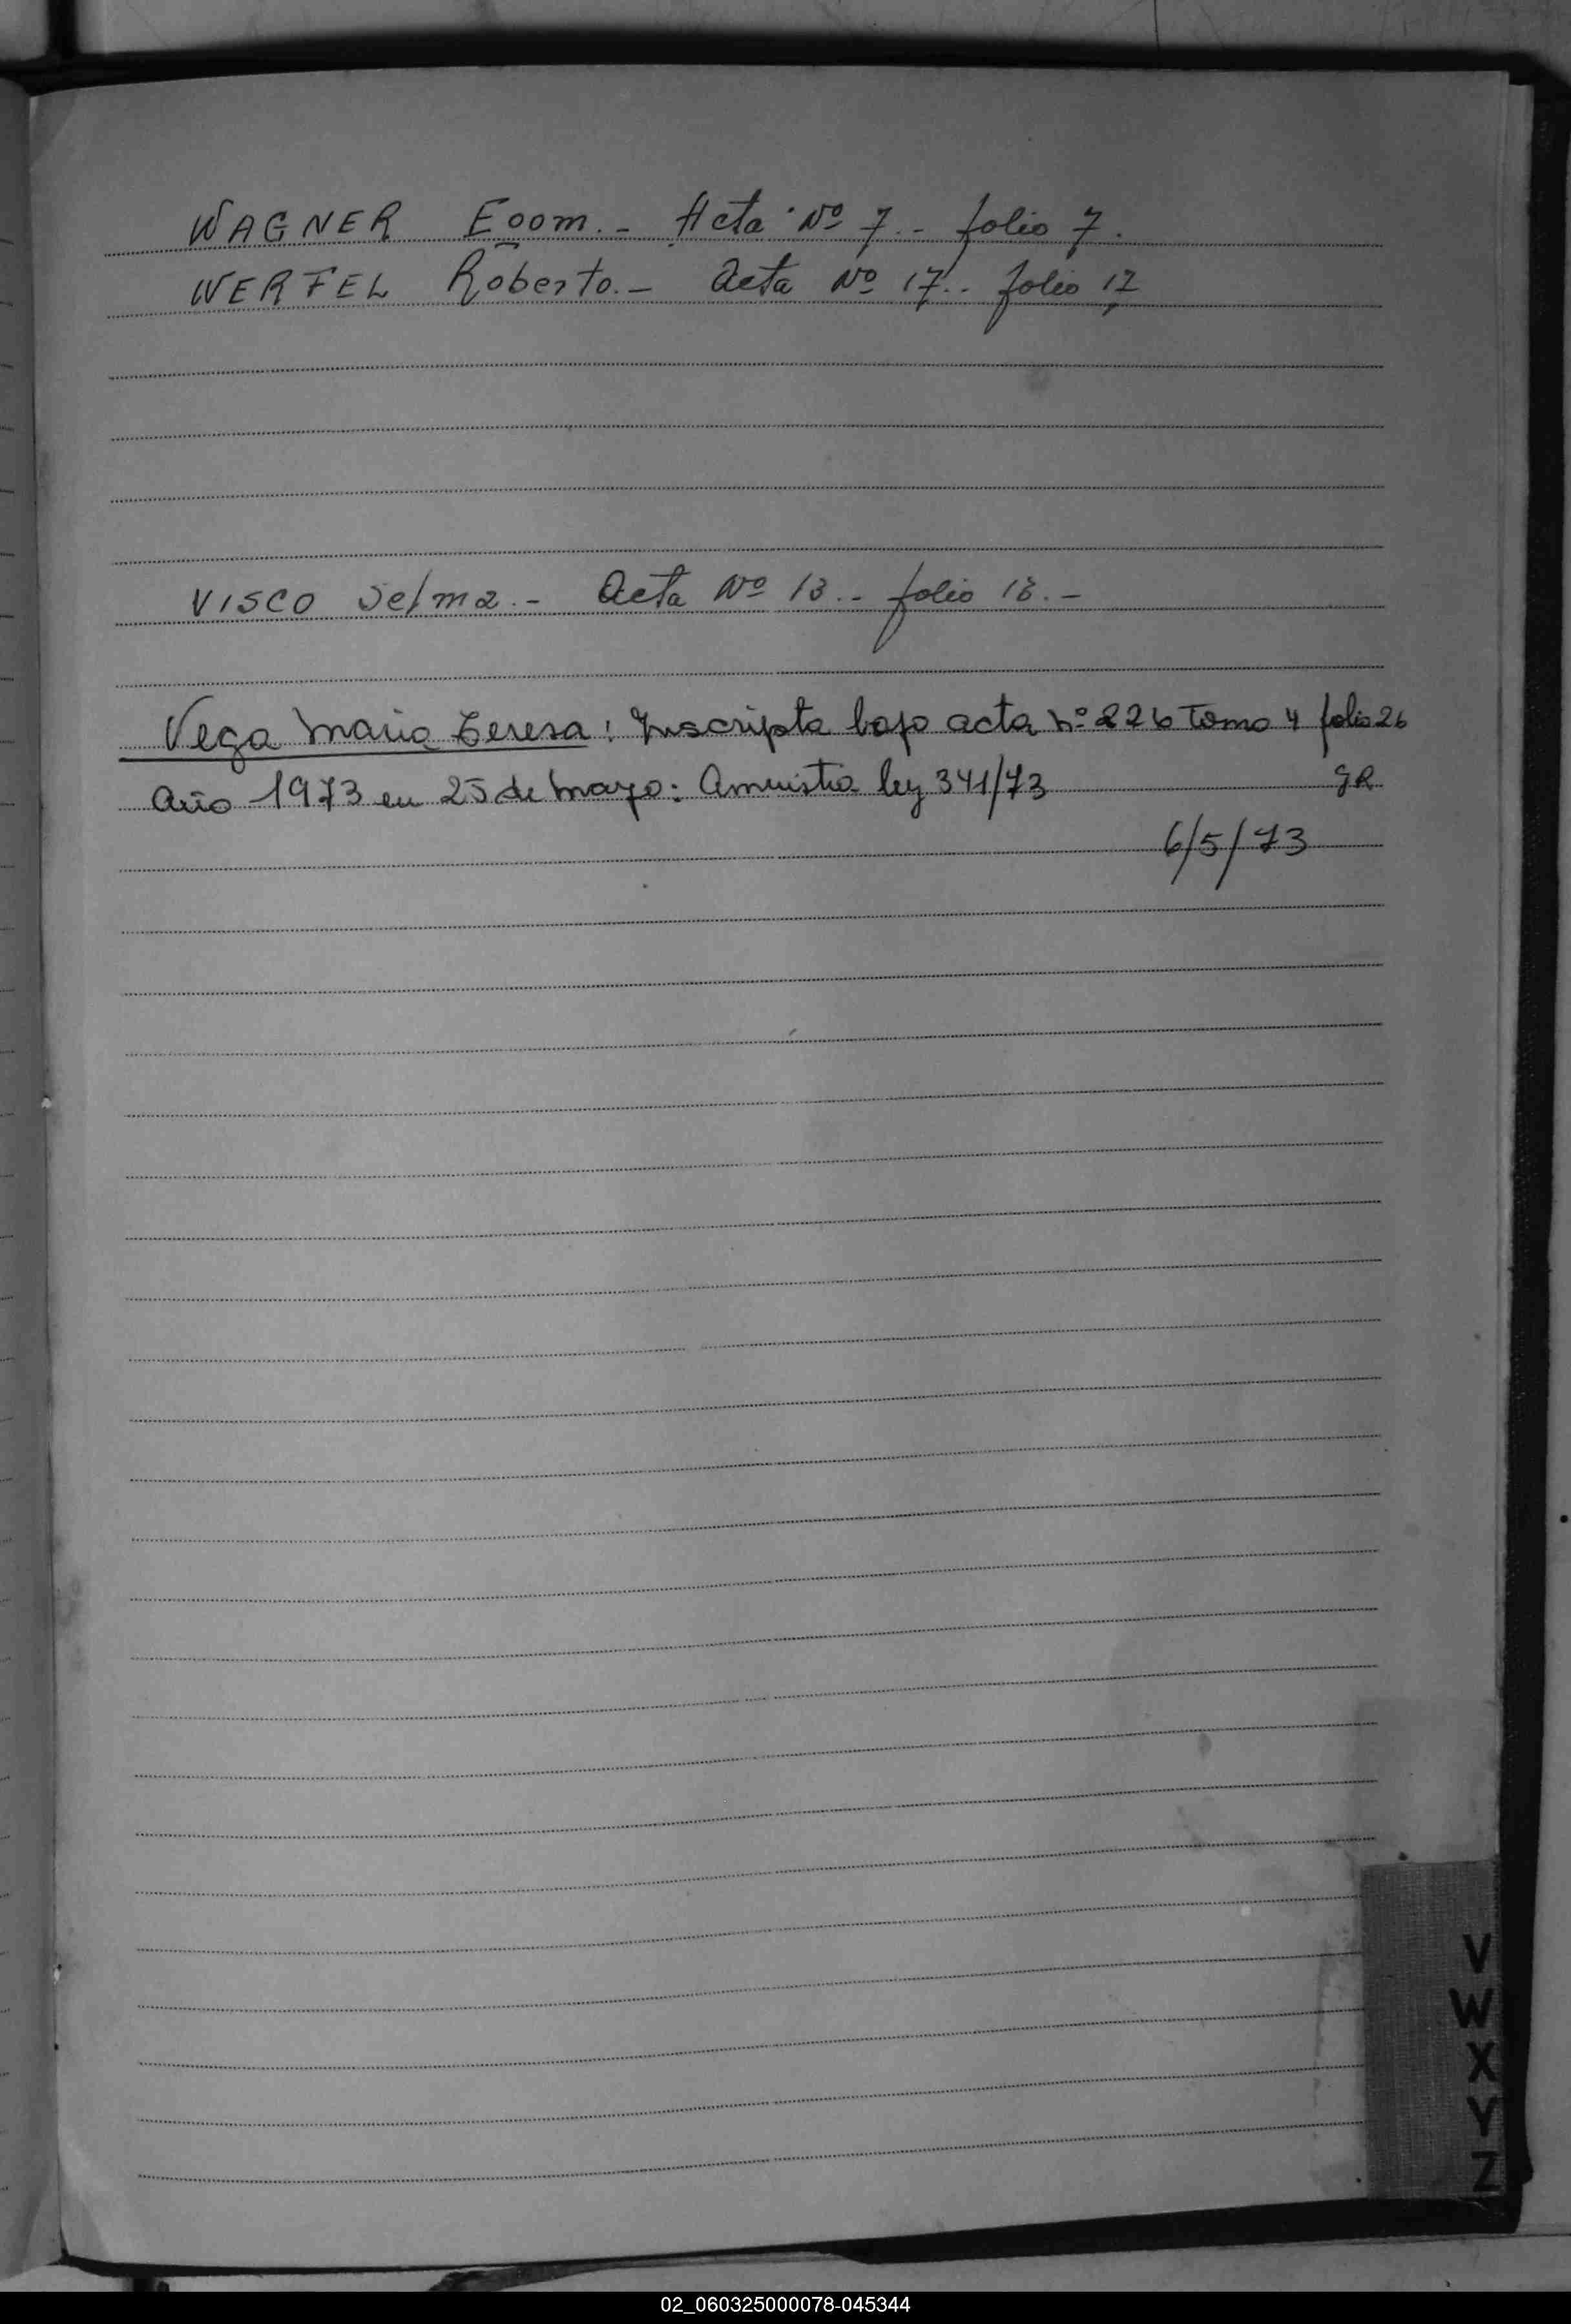 WAGNER Egom.- Acta Nº 7.- folio 7.
WERFEL Roberto.- Acta Nº 17.- folio 17
VISCO Selma.- Acta Nº 13.- folio 13.-
Vega Maria Teresa: Inscripta bajo acta nº 226 Tomo 4 folio 26
año 1973 en 25 de Mayo: Amnistia ley 341/73 GR
6/5/73
V
W
X
Y
Z
02_060325000078-045344